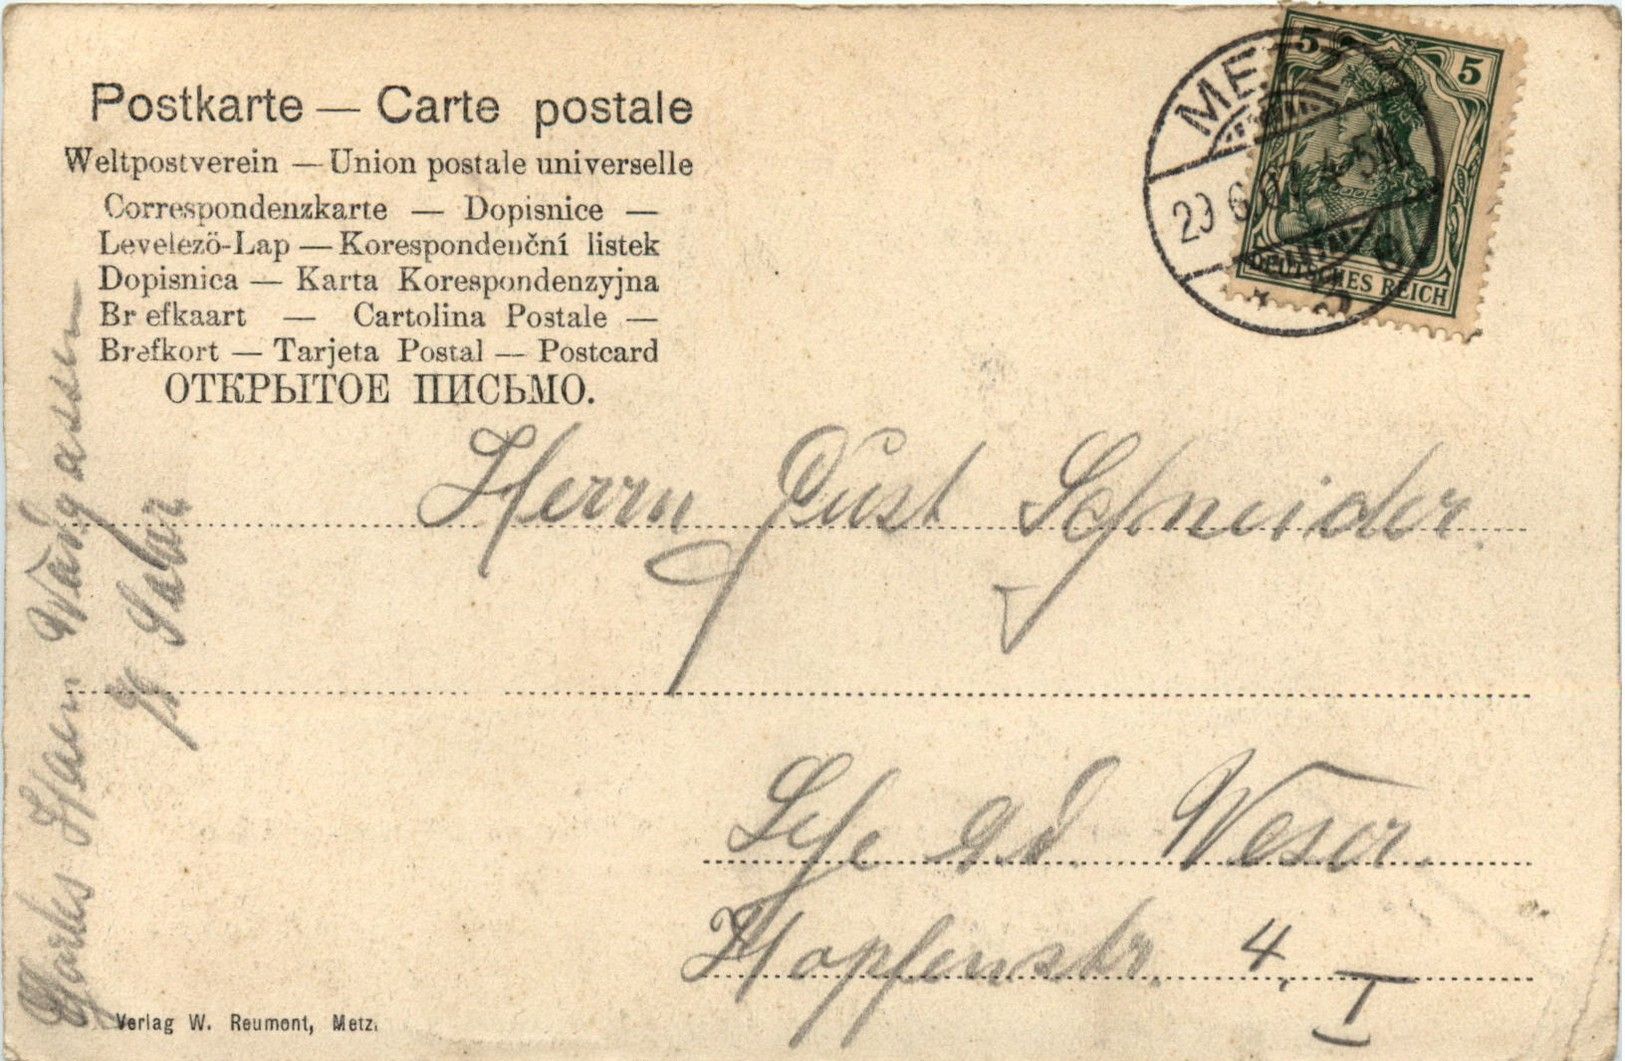 Postkarte — Carte postale
Weltpostverein — Union postale universelle
Correspondenzkarte — Dopisnice —
Levelező-Lap — Korespondenční listek
Dopisnica — Karta Korespondenzyjna
Br efkaart — Cartolina Postale —
Brefkort — Tarjeta Postal — Postcard
ОТКРЫТОЕ ПИСЬМО.
5 5
DEUTSCHES REICH
METZ
29.6.07
Herrn Gust Schneider.
Lehe a/d. Weser.
Hopfenstr. 4.
I
Verlag W. Reumont, Metz.